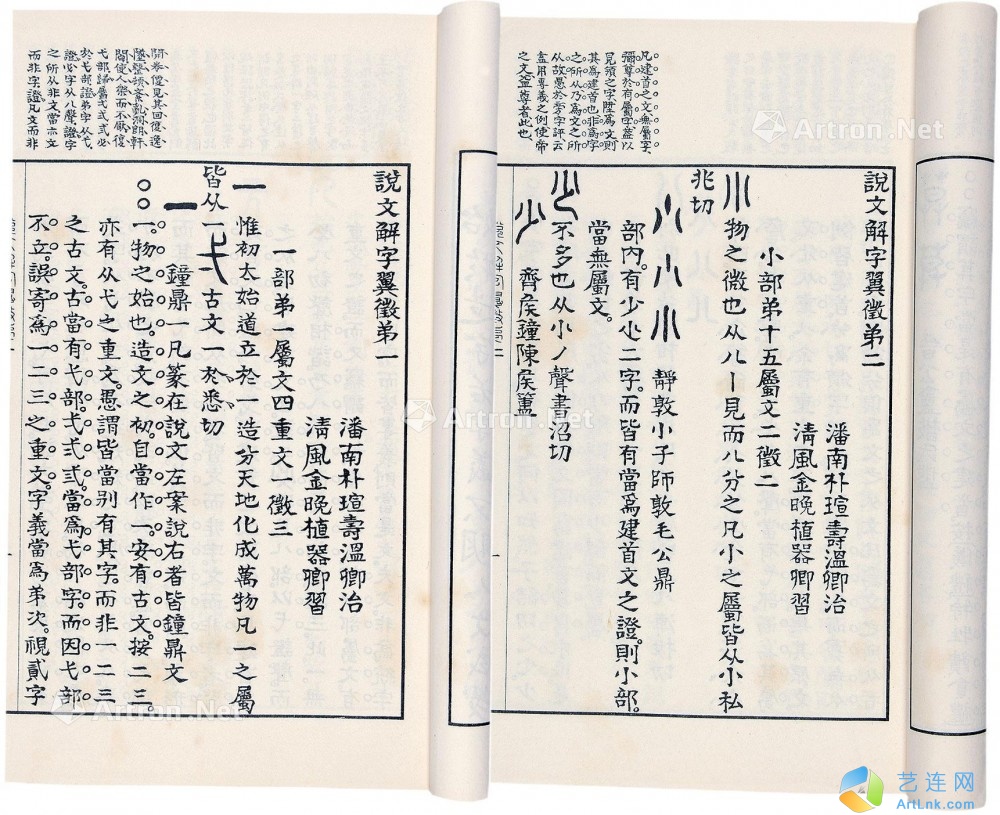 弋部歸屬弌弍弎必
於弋部證弟字从弋
證必字从八聲證字
之所从非文當亦文
而非字證凡文而非
說文解字翼徵弟一
潘南朴瑄壽溫卿治
清風金晚植器卿習
一部弟一屬文四重文一徵三
一
惟初太始道立於一造分天地化成萬物凡一之屬
皆从一
弌
古文一於悉切
一
鐘鼎。凡篆在說文左案說右者皆鐘鼎文
一。物之始也。造文之初。自當作一。安有古文。按二三。
亦有从弋之重文。愚謂皆當別有其字。而非一二三
之古文。古當有弋部。弌弍弎。當爲弋部字。而因弋部
不立。誤寄爲一二三之重文。字義當爲弟次。視貳字
凡建首之文無屬字
彌尊於有屬字蓋以
見領之字陞爲文則
其爲建首也非爲字
之所从乃爲文之所
之文益尊者此也
說文解字翼徵弟二
潘南朴瑄壽溫卿治
清風金晚植器卿習
小部弟十五屬文二徵二
小
物之微也从八丨見而八分之凡小之屬皆从小私
兆切
小 小 小
靜敦小子師敦毛公鼎
部內。有少尐二字。而皆有當爲建首文之證。則小部。
當無屬文。
少
不多也从小丿聲書沼切
少
齊矦鐘陳矦簠
Artron.Net
Artron.Net
Artron.Net
艺连网
ArtLnk.com